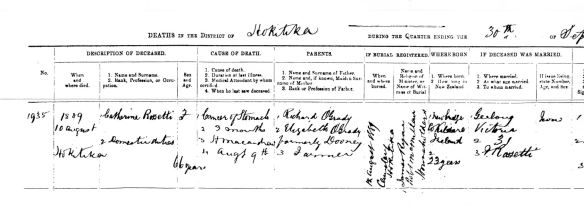 DEATHS IN THE DISTRICT OF Hokitika DURING THE QUARTER ENDING THE 30th OF Sep
DESCRIPTION OF DECEASED. CAUSE OF DEATH. PARENTS. IF BURIAL REGISTERED. WHERE BORN IF DECEASED WAS MARRIED.
No.
When and where died.
1. Name and Surname.
2. Rank, Profession, or Occupation.
Sex and Age.
1. Cause of death.
2. Duration of last illness.
3. Medical Attendant by whom certified.
4. When he last saw deceased.
1. Name and Surname of Father.
2. Name and, if known, Maiden Surname of Mother
3. Rank or Profession of Father.
When and where buried.
Name and Religion of Minister, or Name of Witness of Burial
Where born.
How long in New Zealand
1. Where married.
2. At what age married.
3. To whom married.
If issue living state Number, Age, and Sex
1935
1889
10 August
Hokitika
1 Catherine Rosetti
2 Domestic duties
F
66 years
1 Cancer of Stomach
2 3 months
3
4 Augt 9th
1 Richard O'Grady
2 Elizabeth O'Grady
formerly Dooney
3 Farmer
August 1889
Cemetery
Hokitika
Newbridge
Kildare
Ireland
23 years
Geelong
Victoria
2 31
3 Rosetti